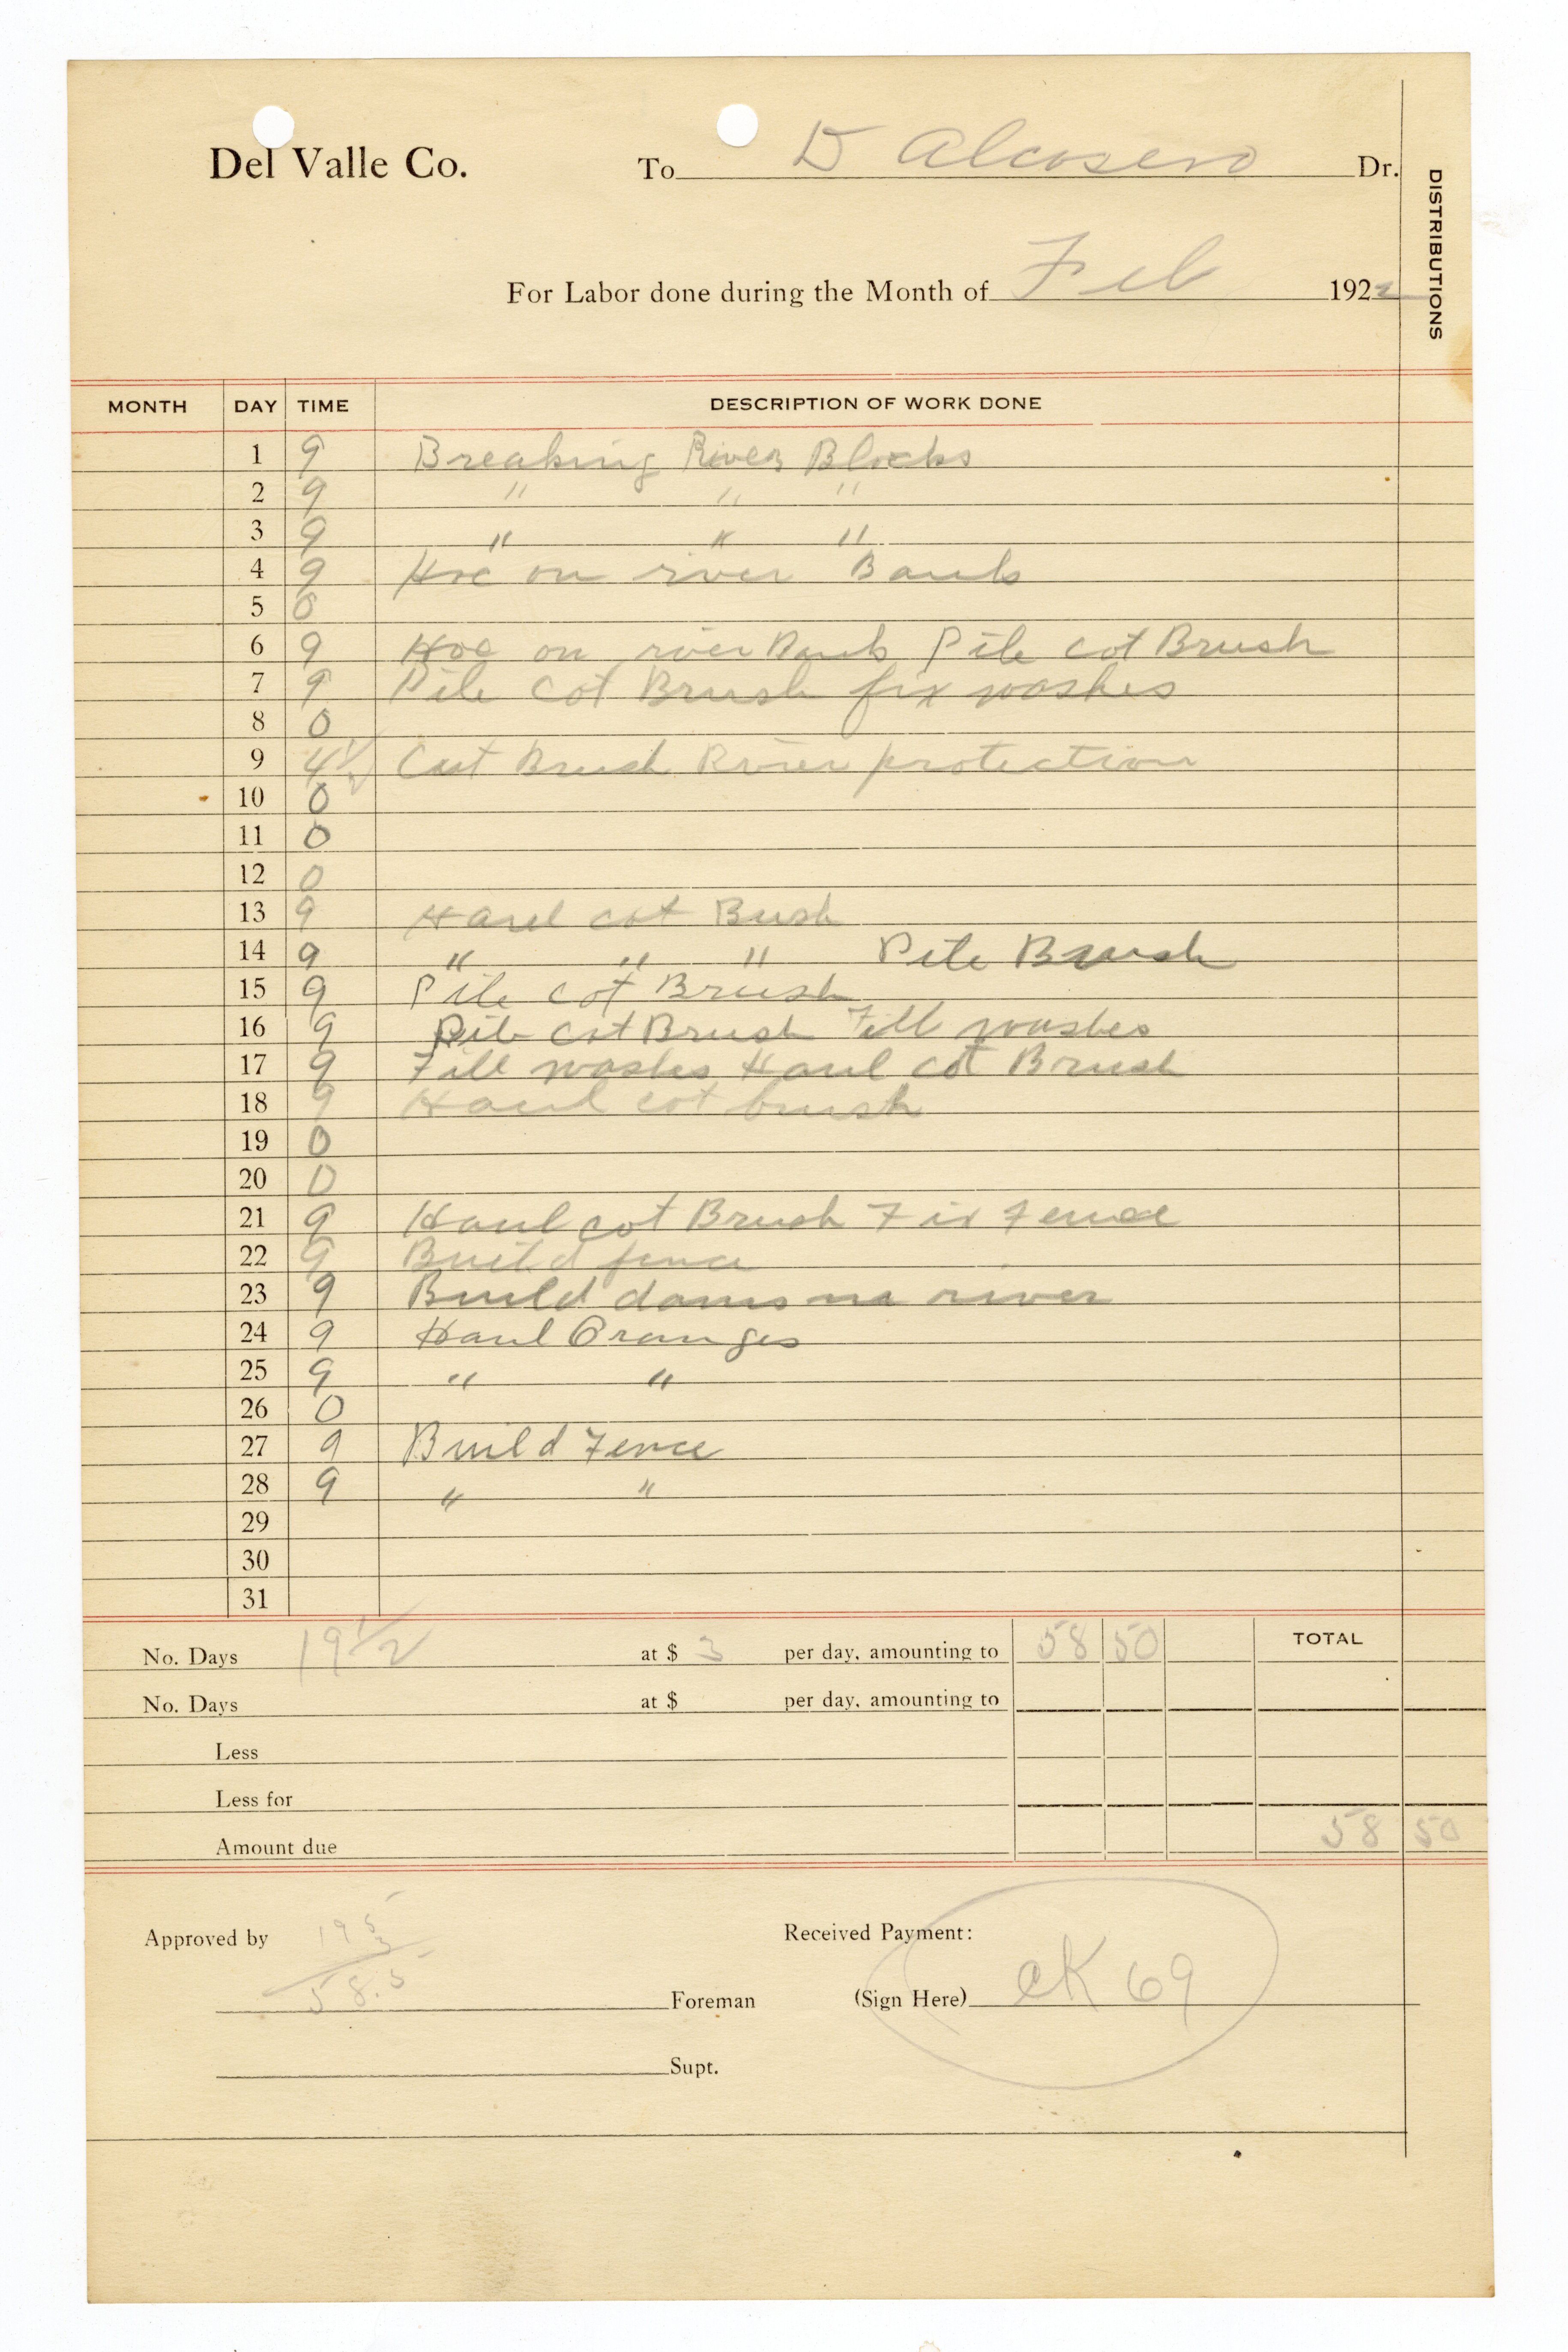 Del Valle Co. To D Alcosero Dr.
DISTRIBUTIONS
For Labor done during the Month of Feb 1922
MONTH DAY TIME DESCRIPTION OF WORK DONE
1 9 Breaking River Blocks
2 9 " " "
3 9 " " "
4 9 Hoe on river Bank
5 0
6 9 Hoe on river Bank Pile cot Brush
7 9 Pile Cot Brush fix washes
8 0
9 4 1/2 Cut Brush River protection
10 0
11 0
12 0
13 9 Haul cot Bush
14 9 " " " Pile Brush
15 9 Pile cot Brush
16 9 Pile cot Brush Fill washes
17 9 Fill washes Haul cot Brush
18 9 Haul cot brush
19 0
20 0
21 9 Haul cot Brush Fix Fence
22 9 Build fence
23 9 Build dams river
24 9 Haul Oranges
25 9 " "
26 0
27 9 Build Fence
28 9 " "
29
30
31
No. Days 19 1/2 at $ 3 per day, amounting to 58 50 TOTAL
No. Days at $ per day, amounting to
Less
Less for
Amount due 58 50
Approved by 19 5 Received Payment:
3
58.5 Foreman (Sign Here) cK 69
Supt.